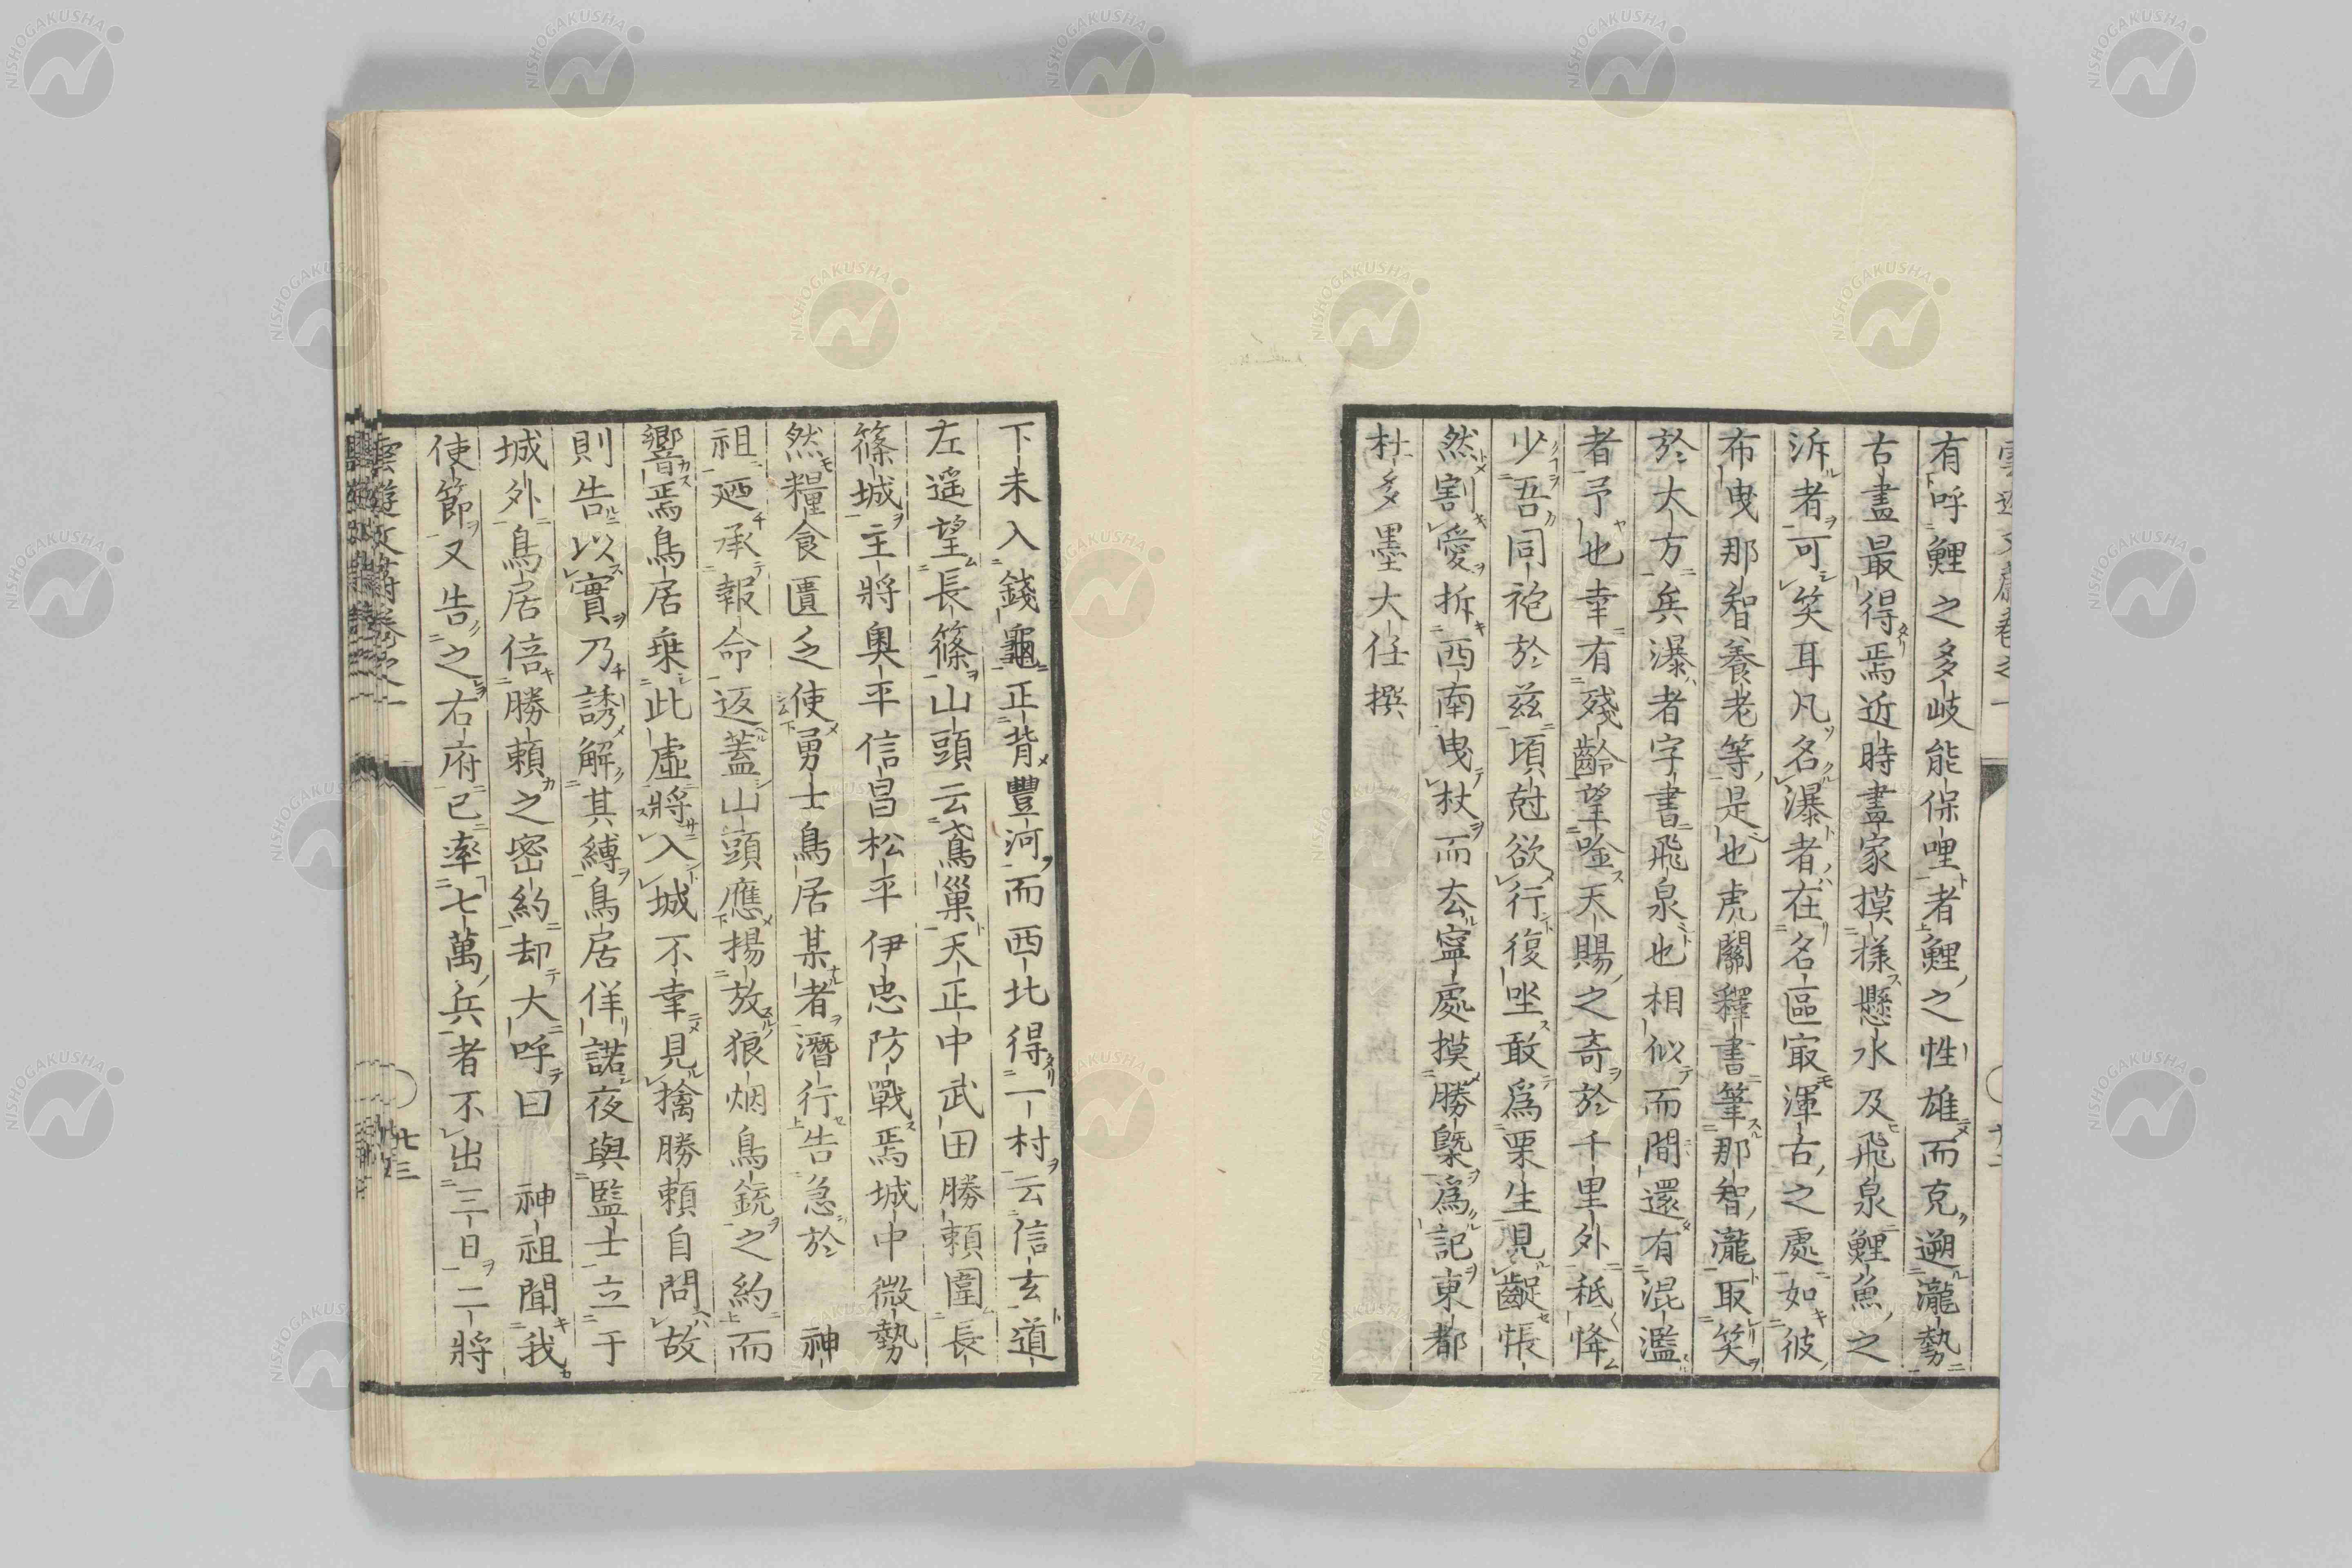 有呼鯉之多岐能保哩者鯉之性雄而克遡瀧勢
古畫最得焉近時畫家摸樣懸水及飛泉鯉魚之
泝者可笑耳凡名瀑者在名區㝡渾古之處如彼
布曳那智養老等是也虎關釋書筆那智瀧取笑
於大方矣瀑者字書飛泉也相似而間還有混濫
者予也幸有殘齡望唫天賜之奇於千里外秖降
少吾同袍於茲頃尅欲行復坐敢爲栗生見齪悵
然割愛折西南曳杖而厺寧處摸勝槩爲記東都
杜多墨大任撰
下未入錢龜正背豐河而西北得一村云信玄道
左遥望長篠山頭云鳶巢天正中武田勝頼圍長
篠城主將奥平信昌松平伊忠防戰焉城中微勢
然糧食匱乏使勇士鳥居某者潛行告急於　神
祖廼承報命返蓋山頭應揚放狼烟鳥銃之約而
響焉鳥居乗此虚將入城不幸見擒勝頼自問故
則告以實乃誘解其縛鳥居佯諾夜與監士立于
城外鳥居倍勝頼之密約却大呼曰　神祖聞我
使節又告之右府已率七萬兵者不出三日二將
雲遊文蔚卷之一
廿三
NISHOGAKUSHA